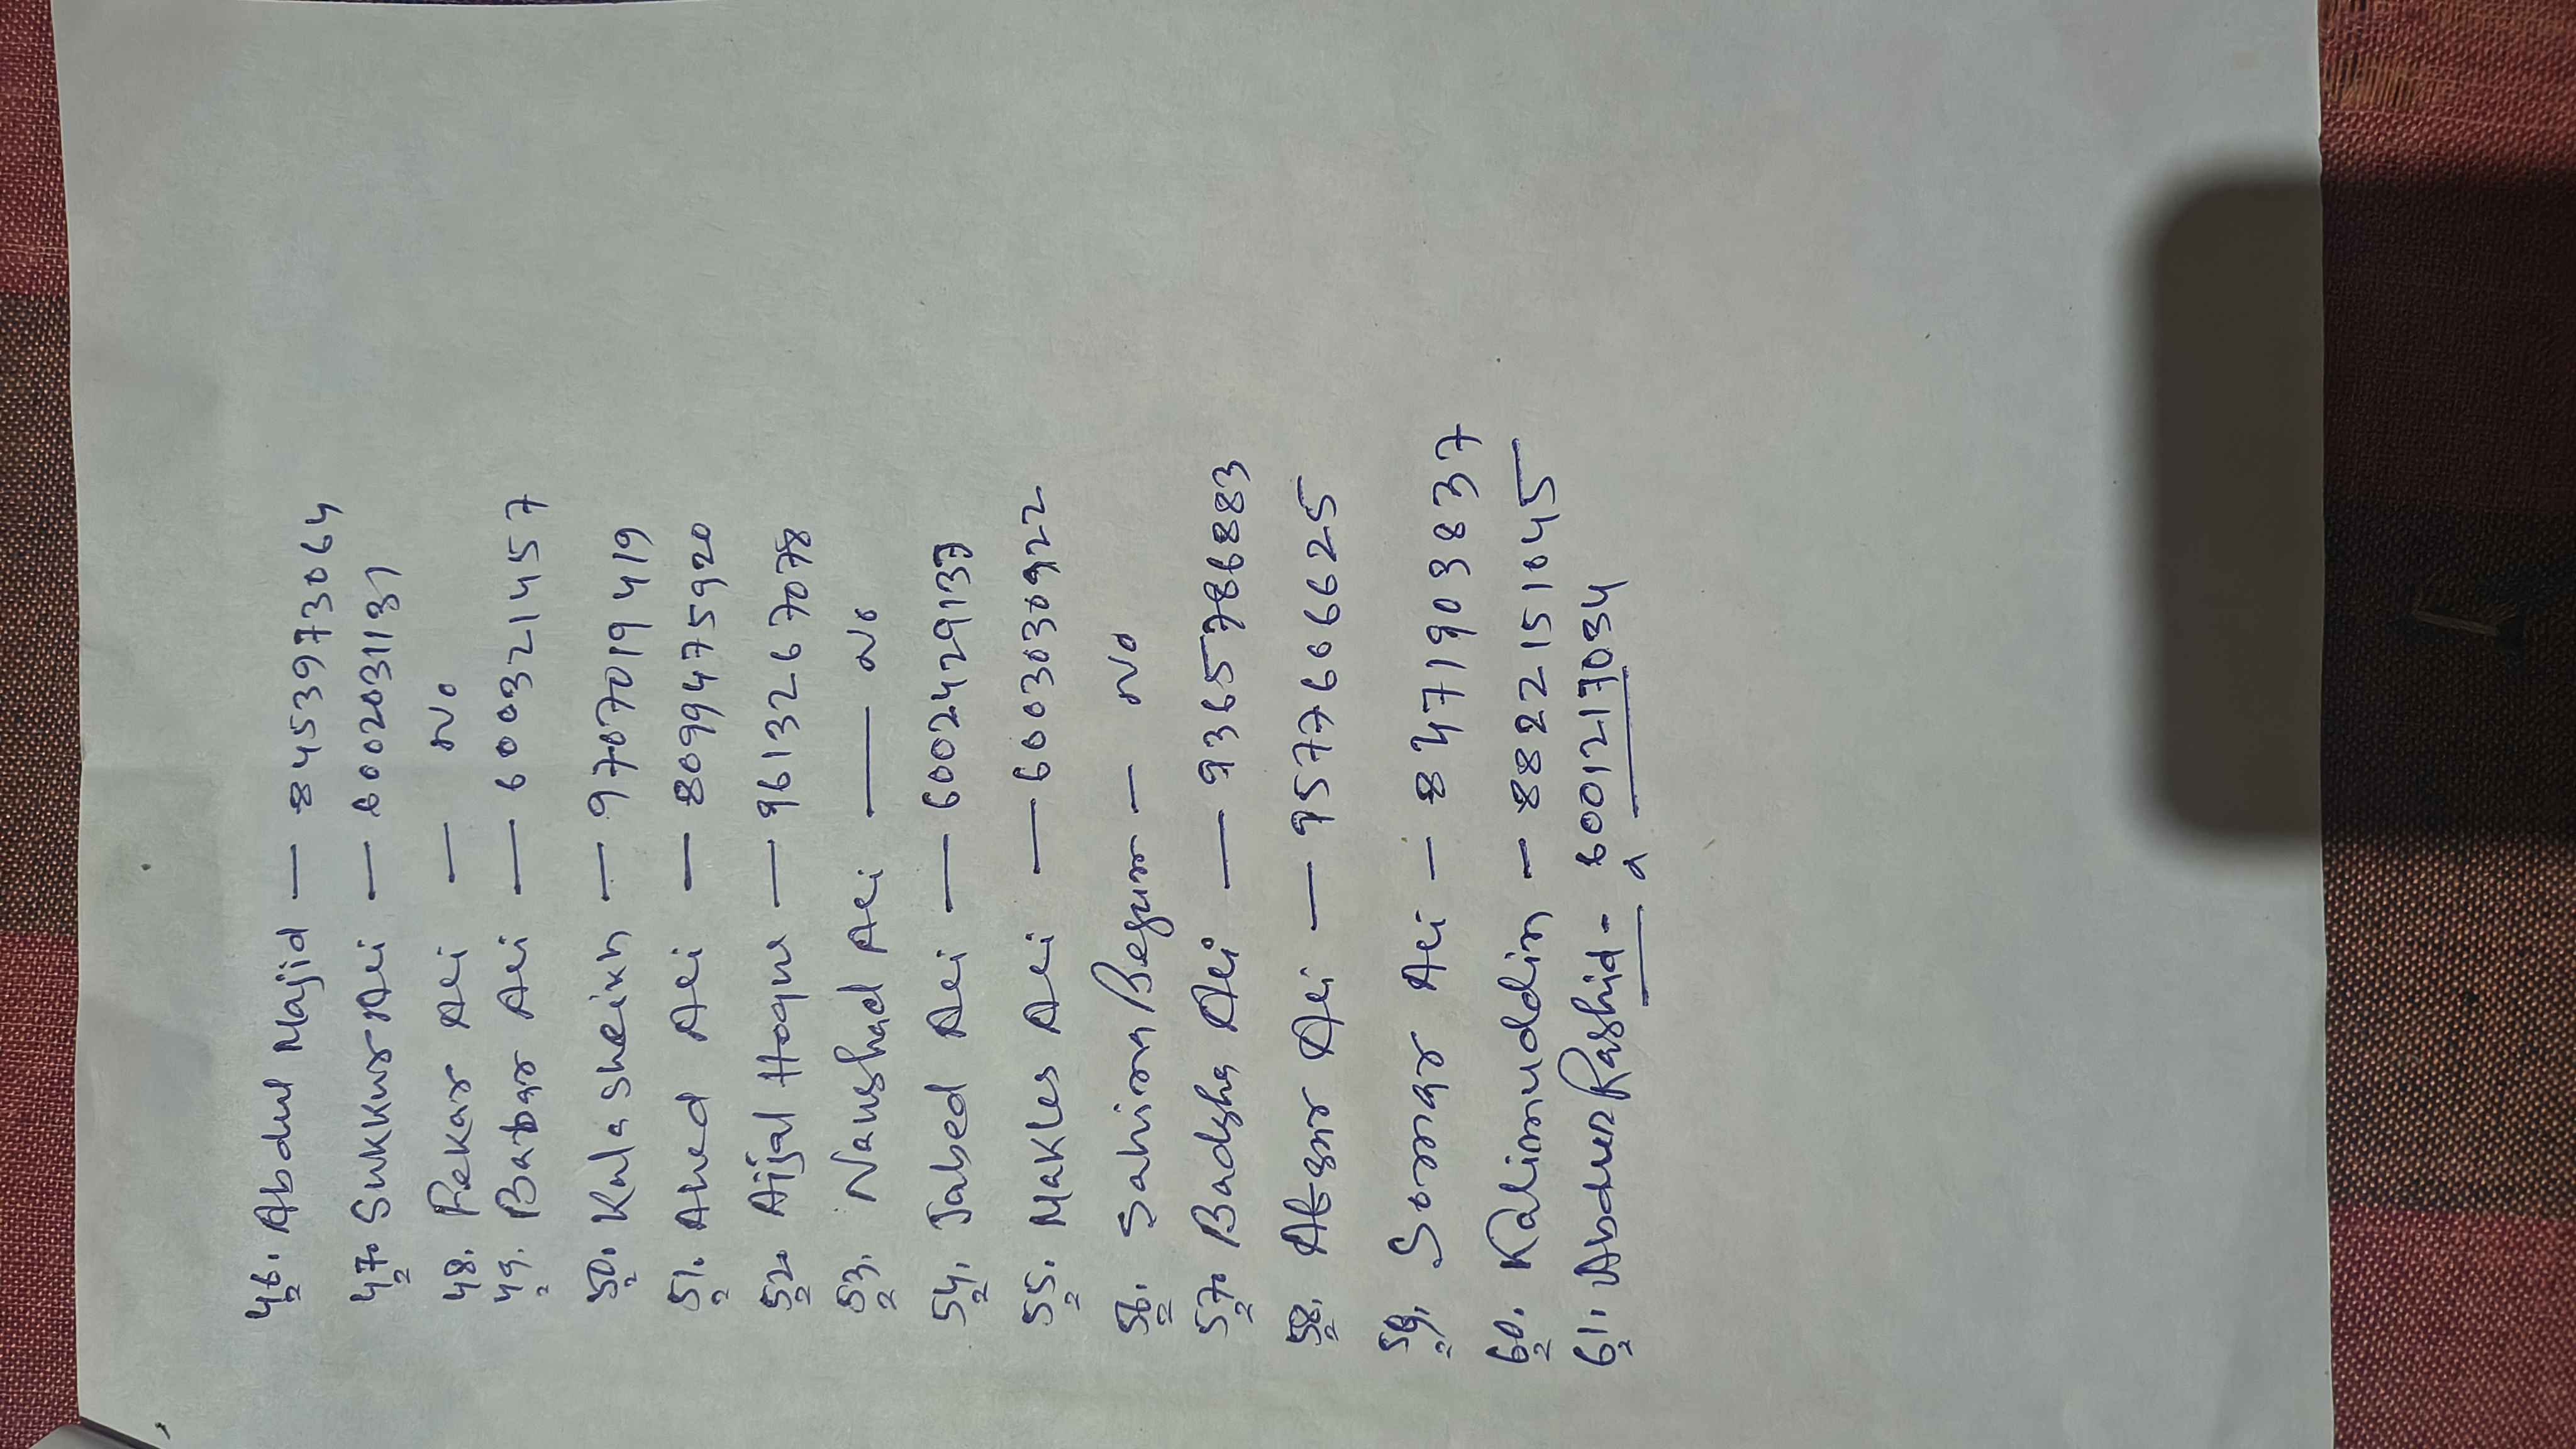 46. Abdul Majid — 8453973064
47. Sukkur Ali — 6002031131
48. Rekar Ali — No
49. Babar Ali — 600321457
50. Kula Sheikh — 9707019419
51. Ahed Ali — 8099475920
52. Aijal Hoque — 9613267078
53. Naushad Ali — No
54. Jabed Ali — 6002429137
55. Makles Ali — 6003030922
56. Sahima Begum — No
57. Badsha Ali — 9365786883
58. Afsar Ali — 9577606625
59. Somar Ali — 8471903837
60. Kalimuddin — 8822151045
61. Abdur Rashid - 6001217034